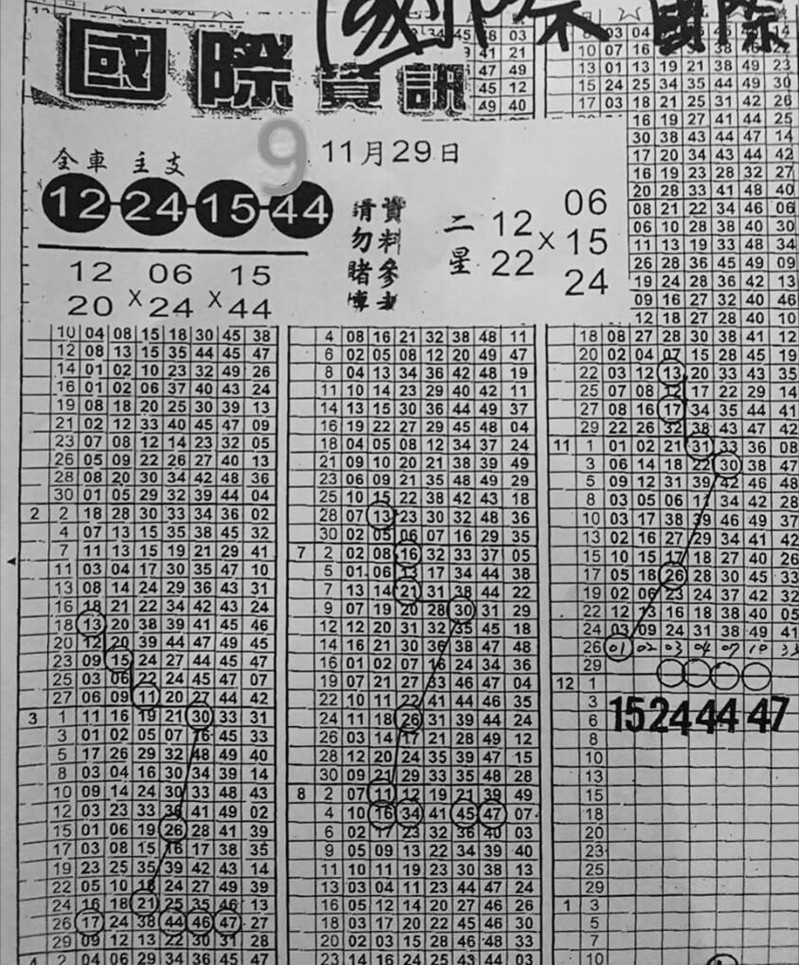 國際
國際
國際資訊
9
11月29日
全車 主支
12-24-15-44
12 06 15
20 X 24 X 44
資料參考
請勿賭博
二星
12 22 X 06 15 24
10 04 08 15 18 30 45 38
12 08 13 15 35 44 45 47
14 01 02 10 23 32 49 26
16 01 02 06 37 40 43 24
19 08 18 20 25 30 39 13
21 02 12 33 40 45 47 09
23 07 08 12 14 23 32 05
26 05 09 22 26 27 40 13
28 08 20 30 34 42 48 36
30 01 05 29 32 39 44 04
2 2 18 28 30 33 34 36 02
4 07 13 15 35 38 45 32
7 11 13 15 19 21 29 41
11 03 04 17 30 35 47 10
13 08 14 24 29 36 43 31
16 18 21 22 34 42 43 24
18 13 20 38 39 41 45 46
20 12 20 39 44 47 49 45
23 09 15 24 27 44 45 47
25 03 06 22 24 45 47 07
27 06 09 11 20 27 44 42
3 1 11 16 19 21 30 33 31
3 01 02 05 07 16 45 33
5 17 26 29 32 48 49 40
8 03 04 16 30 34 39 14
10 09 14 24 30 33 48 43
12 03 23 33 36 41 49 02
15 01 06 19 26 28 41 39
17 03 08 15 16 17 38 35
19 23 25 35 39 42 43 14
22 05 10 18 24 27 49 39
24 16 18 21 25 35 46 13
26 17 24 38 44 46 47 27
29 09 12 13 22 30 31 28
4 2 04 06 29 34 36 45 47
4 08 16 21 32 38 48 11
6 02 05 08 12 20 49 47
8 04 13 34 36 42 48 19
11 10 14 23 29 40 42 11
14 13 15 30 36 44 49 37
16 19 22 27 29 45 48 04
18 04 05 08 12 34 37 24
21 09 10 20 21 38 39 49
23 06 09 21 35 48 49 29
25 10 15 22 38 42 43 18
28 07 13 23 30 32 48 36
30 02 05 06 07 16 29 35
7 2 02 08 16 32 33 37 05
5 01 06 13 17 34 44 38
7 13 14 21 31 38 44 22
9 07 19 20 28 30 31 29
12 12 20 31 32 35 45 18
14 16 21 30 36 38 47 48
16 01 02 07 16 24 34 36
19 07 21 27 33 46 47 04
22 10 11 22 41 44 46 35
24 11 18 26 31 39 44 24
26 03 14 17 21 28 49 12
28 12 20 24 35 39 47 15
30 09 21 29 33 35 48 28
8 2 07 11 12 19 21 39 49
4 10 16 34 41 45 47 07
6 02 17 23 32 36 40 03
9 05 09 13 22 34 39 40
11 10 11 19 23 30 38 13
13 03 04 11 23 44 47 24
16 05 12 14 20 27 46 26
18 03 17 20 22 45 46 30
20 02 03 15 28 46 48 33
23 14 16 24 25 43 44 03
10 07 16
13 01 13 19 21 38 49 23
15 24 25 34 35 44 49 30
17 03 18 21 25 31 42 26
16 19 27 41 44 25
30 38 43 44 47 14
17 20 34 43 44 42
16 19 23 28 32 27
20 28 33 41 48 40
08 21 22 34 46 06
06 10 28 38 40 30
11 13 19 33 48 34
26 28 36 45 49 09
19 24 28 36 42 13
09 16 27 32 40 46
12 18 27 28 40 10
18 08 27 28 30 38 41 12
20 02 04 07 15 28 45 19
22 03 12 13 20 33 43 35
25 07 08 17 22 29 14
27 08 16 17 34 35 44 41
29 22 26 32 38 43 47 42
11 1 01 02 21 31 33 36 08
3 06 14 18 22 30 38 47
5 09 12 31 39 42 46 48
8 03 05 06 17 34 42 28
10 03 17 38 39 46 49 37
13 02 16 27 29 34 41 42
15 10 15 17 18 27 40 26
17 05 18 26 28 30 45 33
19 02 06 23 24 37 42 32
22 12 13 16 18 38 40 05
24 03 09 24 31 38 49 41
26 01 02 03 04 07 10 33
29
12 1
3
6 15 24 44 47
8
10
13
15
18
20
23
25
29
1 3
5
7
10